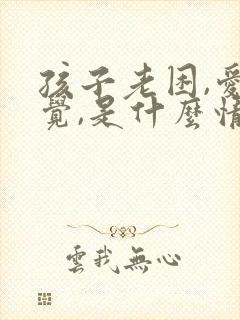 孩子老困,愛
覺,是什麼情
雲我無心